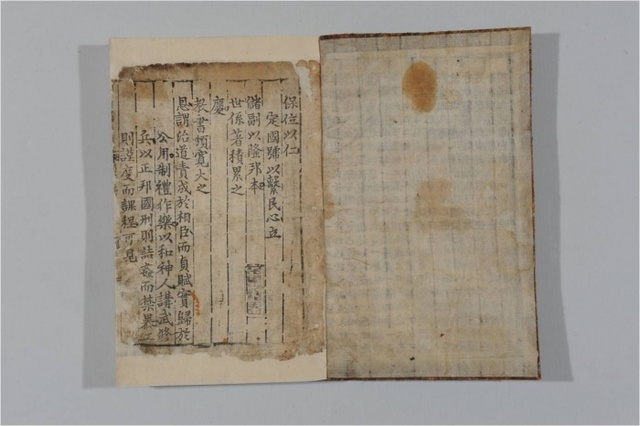 保位以仁
定國號以繫民心立
儲副以隆邦本
世係著積累之
慶
教書頒寬大之
恩謂治道責成於相臣而貢賦實歸於
公用制禮作樂以和神人講武治
兵以正邦國刑則詰姦而禁暴工
則謹度而課程可見